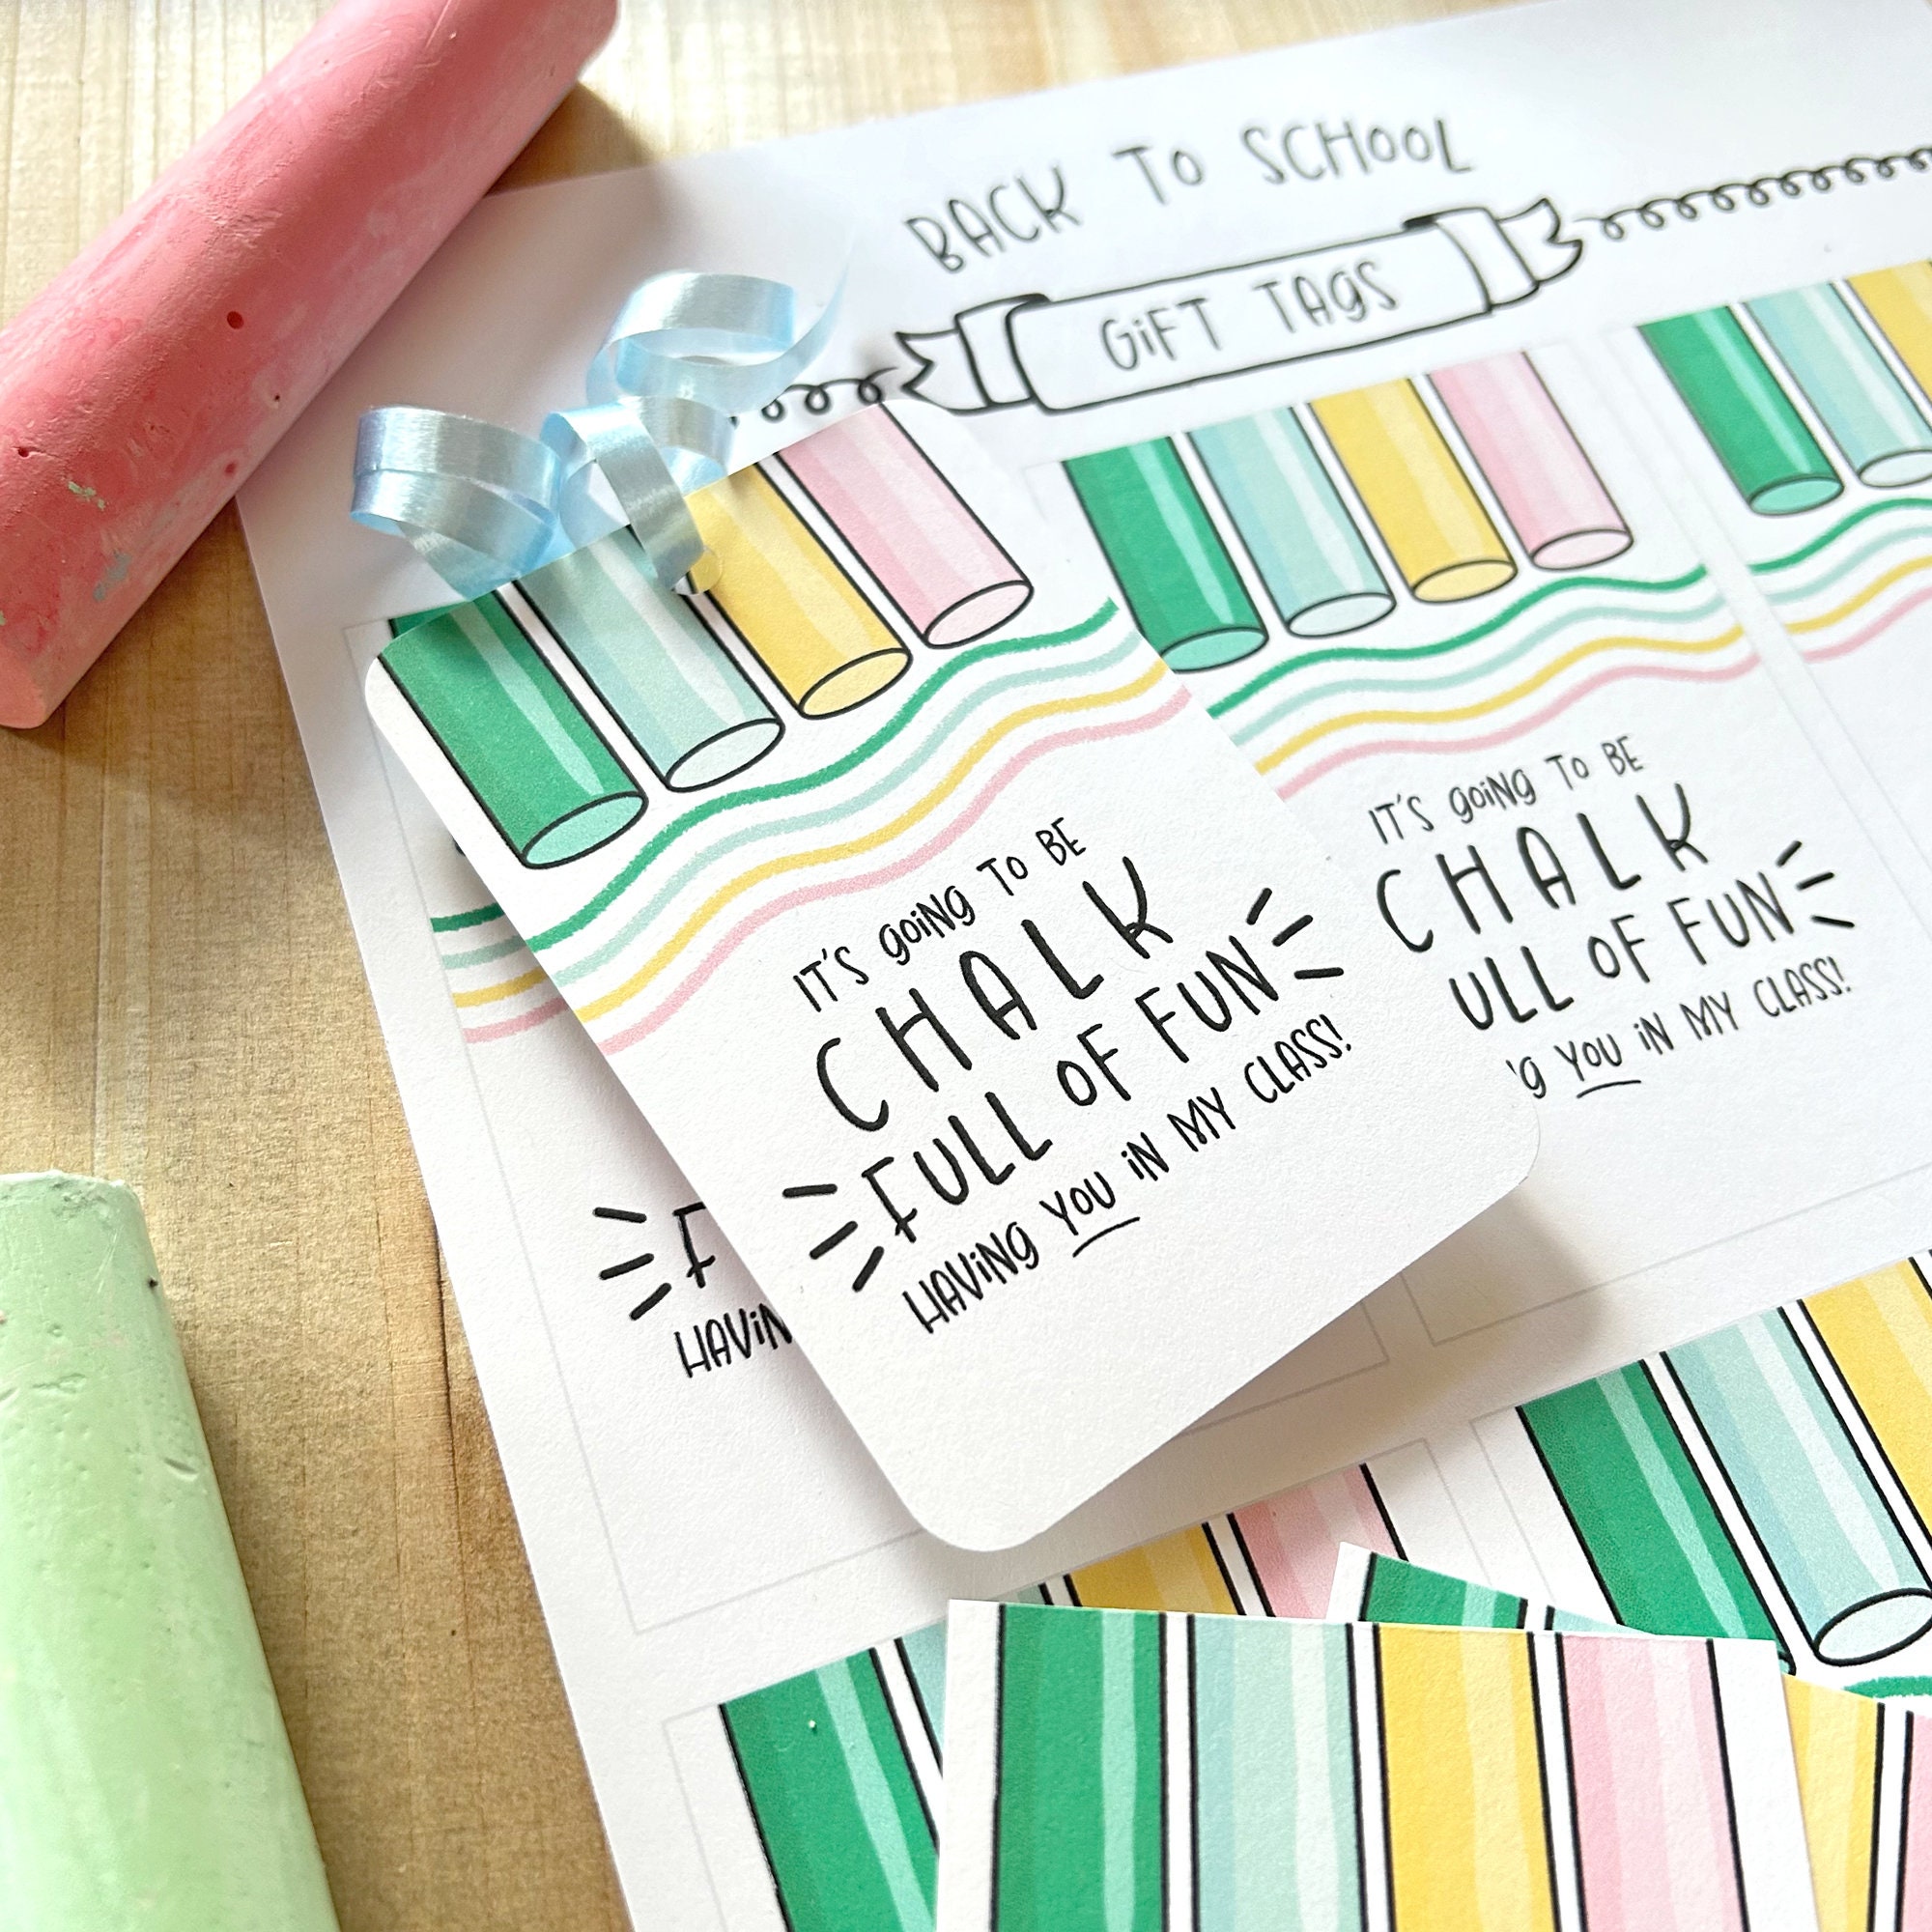 BACK TO SCHOOL
GIFT TAGS
IT'S GOING TO BE
CHALK
FULL OF FUN
HAVING YOU IN MY CLASS!
IT'S GOING TO BE
CHALK
ULL OF FUN
'G YOU IN MY CLASS!
F
HAVIN